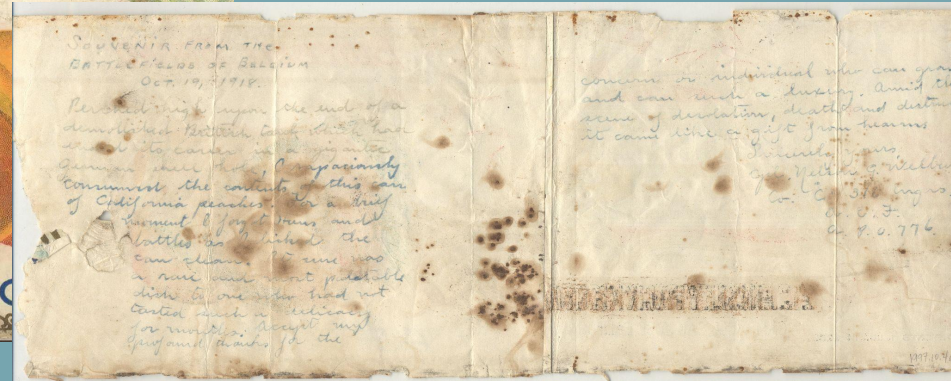 SOUVENIR FROM THE
BATTLEFIELDS OF BELGIUM
OCT. 19, 1918.
Perched high upon the end of a
demolished British tank which had
ended its career in a gigantic
German shell hole, I rapaciously
consumed the contents of this can
of California peaches. For a brief
moment I forgot Huns and
battles as I licked the
can clean. It sure was
a rare and most palatable
dish to one who had not
tasted such a delicacy
for months. Accept my
profound thanks for the
concern or individual who can
and can such a luxury. Amid
scene of desolation, death and
it came like a gift from heaven
Sincerely yours,
Co.
A. P. O. 776.